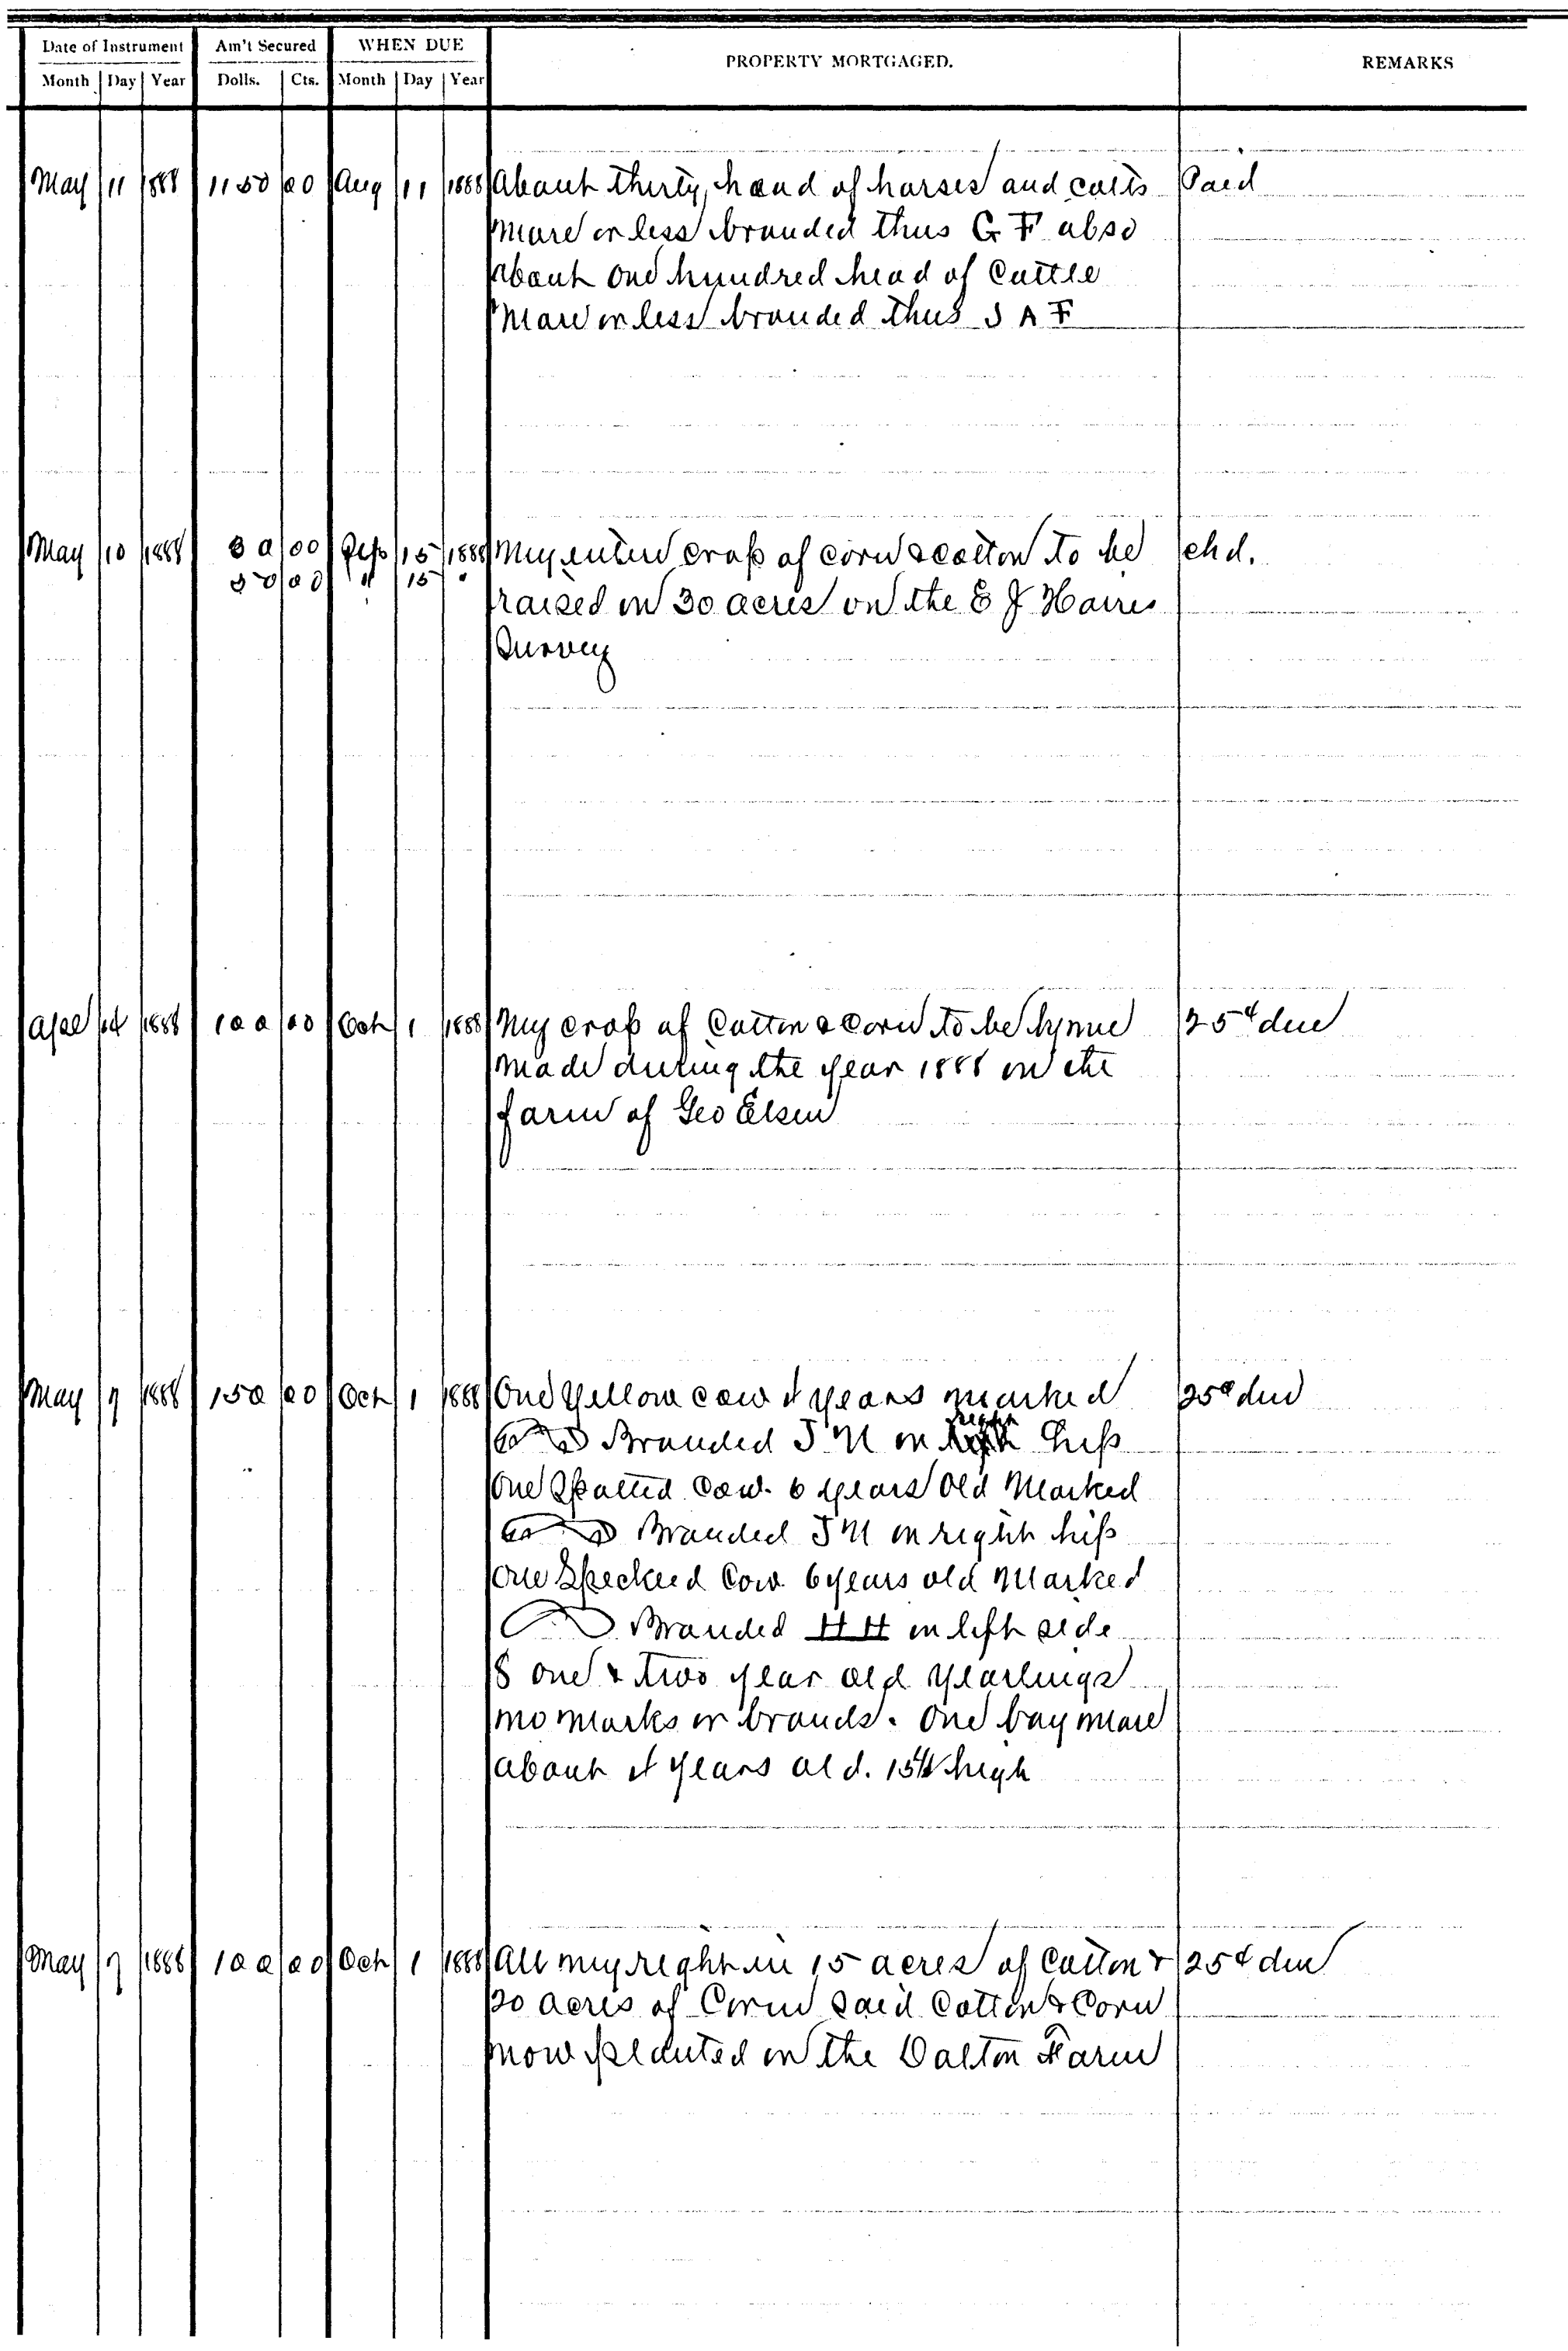 Date of Instrument Am't Secured WHEN DUE PROPERTY MORTGAGED. REMARKS
Month Day Year Dolls. Cts. Month Day Year
May 11 1888 1150 00 Aug 11 1888 About thirty head of horses and colts Paid
more or less branded thus G F also
about one hundred head of Cattle
more or less branded thus J A F
May 10 1888 30 00 Sep 15 1888 My entire crop of corn & cotton to be chd.
50 00 " 15 "
raised on 30 acres on the E J Harris
Survey
Apl 14 1888 100 00 Oct 1 1888 My crop of Cotton & Corn to be by me 25¢ due
made during the year 1888 on the
farm of Geo Elsen
May 7 1888 150 00 Oct 1 1888 One Yellow cow 4 years marked 25¢ due
Branded J M on right hip
One Spotted Cow. 6 years Old Marked
Branded J M on right hip
One Specked Cow 6 years old Marked
Branded H H on left side
8 one & two year old yearlings
no marks or brands. One bay mare
about 4 years old. 15 H high
May 7 1888 100 00 Oct 1 1888 All my right in 15 acres of Cotton & 25¢ due
20 acres of Corn said Cotton & Corn
now planted on the Dalton Farm